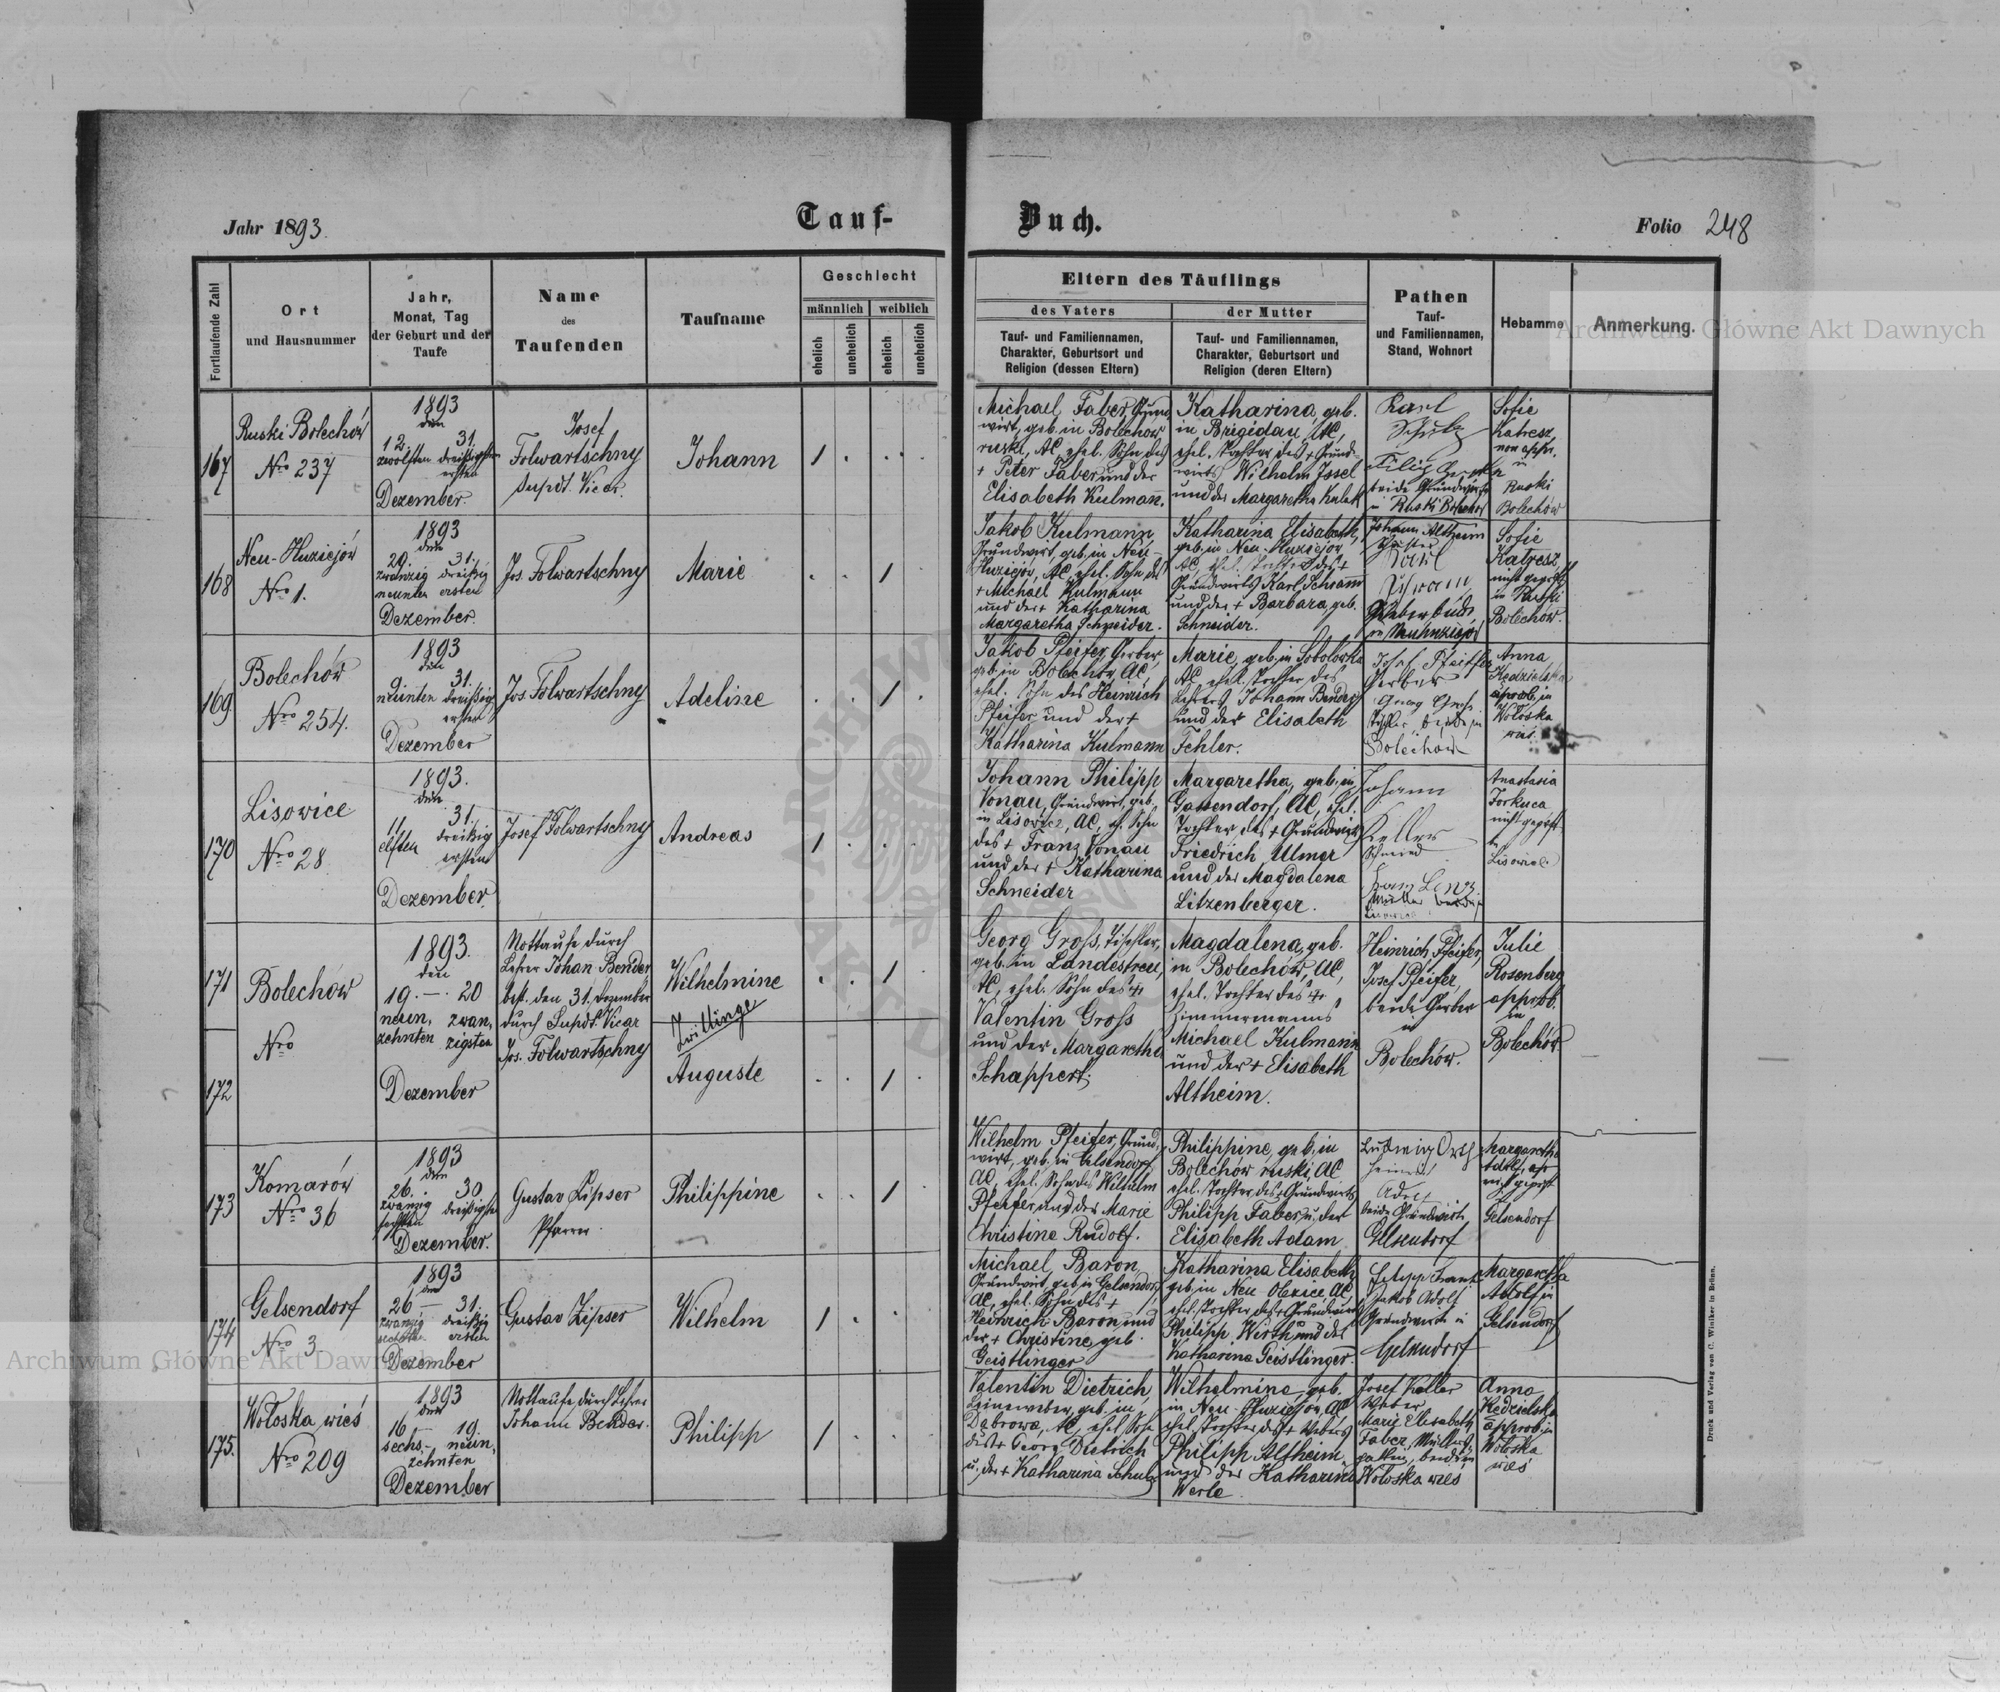 Jahr 1893.
Tauf-
Buch.
Folio 248
Fortlaufende Zahl
Ort
und Hausnummer
Jahr,
Monat, Tag
der Geburt und der
Taufe
Name
des
Taufenden
Taufname
Geschlecht
männlich
weiblich
ehelich
unehelich
ehelich
unehelich
Eltern des Täuflings
des Vaters
Tauf- und Familiennamen,
Charakter, Geburtsort und
Religion (dessen Eltern)
der Mutter
Tauf- und Familiennamen,
Charakter, Geburtsort und
Religion (deren Eltern)
Pathen
Tauf-
und Familiennamen,
Stand, Wohnort
Hebamme
Anmerkung.
167
Ruski Bolechów
Nro 237
1893
den
12. 31.
zwölften dreißigsten
ersten
Dezember.
Josef
Folwartschny
Supdt. Vicar.
Johann
1
Michael Faber, Grund
wirt, geb. in Bolechow
ruski, AC, ehel. Sohn des
+ Peter Faber und der
Elisabeth Kulman.
Katharina, geb.
in Brigidau, AC,
ehel. Tochter des + Grund-
wirts Wilhelm Issel
und der Margaretha
Karl
Schulz
Filip
beide Grundwirte
in Ruski Bolechow
Sofie
Katresz,
non appr.
in
Ruski
Bolechów
168
Neu-Huziejów
Nro 1.
1893
den
29. 31.
zwanzig dreißig
neunten ersten
Dezember.
Jos. Folwartschny
Marie
1
Jakob Kulmann,
Grundwirt, geb. in Neu-
Huziejów, AC, ehel. Sohn des
+ Michael Kulmann
und der + Katharina
Margaretha Schneider.
Katharina Elisabeth,
geb. in Neu-Huziejow
AC, ehel. Tochter des +
Grundwirts Karl Schramm
und der + Barbara, geb.
Schneider.
Johann Altheim
Schuster
Schramm
in
Sofie
Katresz,
nicht geprüft
in Ruski
Bolechów.
169
Bolechów
Nro 254.
1893
den
9. 31.
neunten dreißig
ersten
Dezember
Jos. Folwartschny
Adeline
1
Jakob Pfeifer, Gerber,
geb. in Bolechów, AC,
ehel. Sohn des Heinrich
Pfeifer und der +
Katharina Kulmann
Marie, geb. in Sobolówka
AC, ehel. Tochter des
Lehrers Johann Bender
und der Elisabeth
Fehler.
Josef Pfeiffer
Gerber
Georg
Tischler, beide in
Bolechow
Anna
Kedzielska
approb. in
Wołoska
wies.
170
Lisowice
Nro 28.
1893.
den
11. 31.
elften dreißig
ersten
Dezember.
Josef Folwartschny
Andreas
1
Johann Philipp
Vonau, Grundwirt, geb.
in Lisowice, AC, eh. Sohn
des + Franz Vonau
und der + Katharina
Schneider
Margaretha, geb. in
Gassendorf, AC, ehel.
Tochter des + Grundwirts
Friedrich Ulmer
und der Magdalena
Litzenberger.
Johann
Keller
Schmied
Franz Lenz
Müller beide in
Anastasia
Forkuca
nicht geprüft
in
Lisowice.
171
172
Bolechow
Nro
1893.
den
19. — 20
neun, zwan,
zehnten zigsten
Dezember
Nottaufe durch
Lehrer Johan Bender
best. den 31. Dezember
durch Supdt. Vicar
Jos. Folwartschny
Wilhelmine
Zwillinge
Auguste
1
1
Georg Gross, Tischler,
geb. in Landestreu,
AC, ehel. Sohn des +
Valentin Gross
und der Margaretha
Schappert.
Magdalena, geb.
in Bolechów, AC,
ehel. Tochter des +
Zimmermanns
Michael Kulmann
und der + Elisabeth
Altheim.
Heinrich Pfeifer,
Josef Pfeifer,
beide Gerber
in
Bolechów.
Julie
Rosenberg
approb.
in
Bolechów.
173
Komarów
Nro 36
1893
den
26. 30
zwanzig dreißigsten
sechsten
Dezember.
Gustav Zipser
Pfarrer
Philippine
1
Wilhelm Pfeifer, Grund,
wirt, geb. in Gelsendorf,
AC, ehel. Sohn des Wilhelm
Pfeifer und der Marie
Christine Rudolf.
Philippine, geb. in
Bolechow ruski, AC
ehel. Tochter des + Grundwirts
Philipp Faber u. der
Elisabeth Adam
Ludwig Orth
Adolf
beide Grundwirte
Gelsendorf
Margaretha
Adolf,
nicht geprüft
Gelsendorf
174
Gelsendorf
Nro 3.
1893
den
26 — 31.
zwanzig dreißig
sechsten ersten
Dezember
Gustav Zipser
Wilhelm
1
Michael Baron,
Grundwirt, geb. in Gelsendorf
AC, ehel. Sohn des +
Heinrich Baron und
der + Christine, geb.
Geistlinger
Katharina Elisabeth
geb. in Neu Olexice, AC
ehel. Tochter des + Grundwirts
Philipp Wirth und der
Katharina Geistlinger.
Filipp Frank
Jakob Adolf
Grundwirte in
Gelsendorf
Margaretha
Adolf in
Gelsendorf
175.
Wołoska wieś
Nro 209
1893
den
16 — 19.
sechs- neun,
zehnten
Dezember
Nottaufe durch Lehrer
Johann Bender.
Philipp
1
Valentin Dietrich,
Leineweber, geb. in
Dąbrowa, AC, ehel. Sohn
des + Georg Dietrich
u. der + Katharina Schulz
Wilhelmine, geb.
in Neu-Huziejów, AC
ehel. Tochter des + Webers
Philipp Altheim
und der Katharina
Werle.
Josef Keller
Marie Elisabeth
Faber, Müllers-
gattin, beide in
Wołoska wieś
Anna
Kedzielska
approb. in
Wołoska
wieś
Druck und Verlag von C. Winiker in Brünn.
Archiwum Główne Akt Dawnych
Archiwum Główne Akt Dawnych